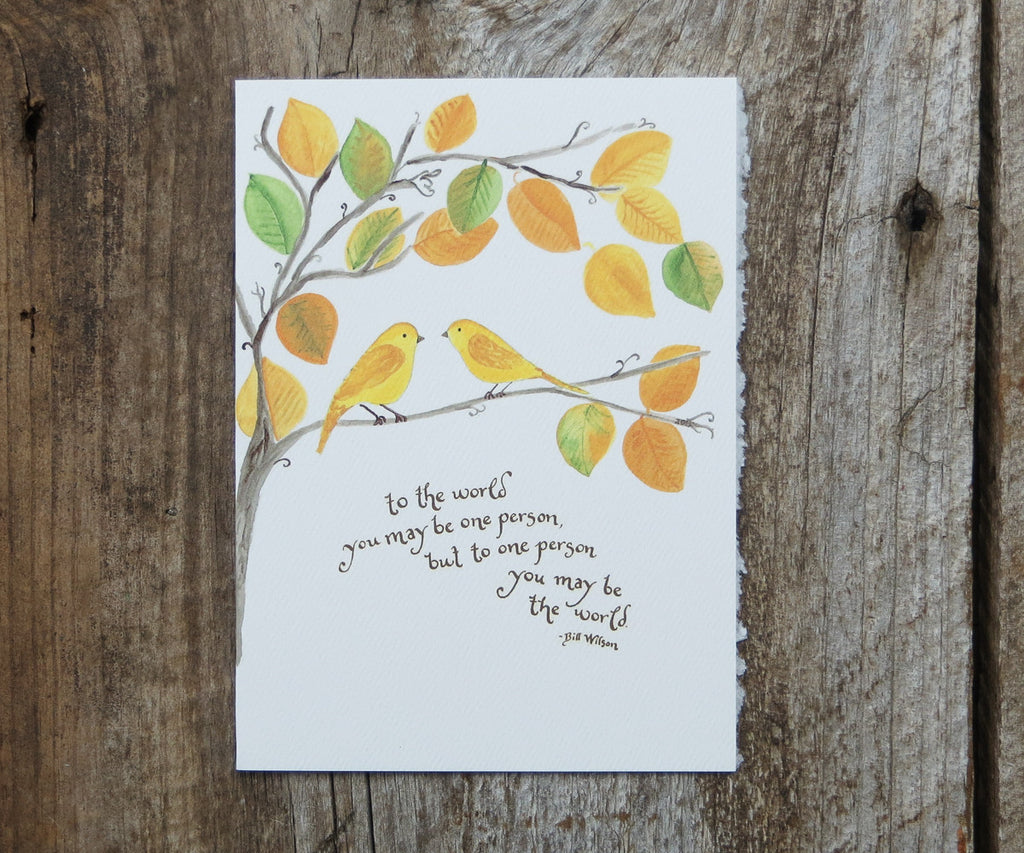 to the world
you may be one person,
but to one person
you may be
the world.
-Bill Wilson